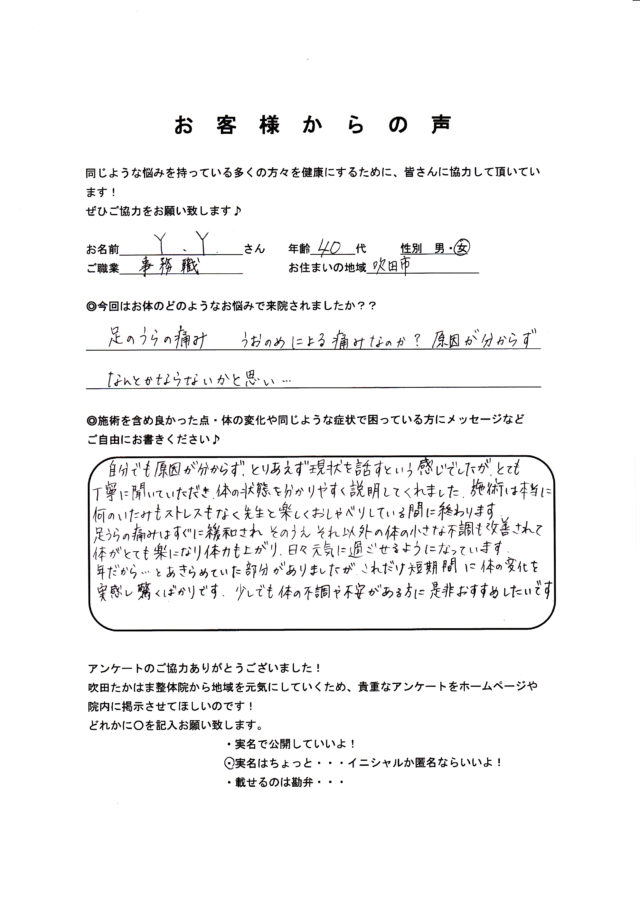 お客様からの声
同じような悩みを持っている多くの方々を健康にするために、皆さんに協力して頂いてい
ます！
ぜひご協力をお願い致します♪
お名前 Y.Y. さん 年齢 40 代 性別 男・女
ご職業 事務職 お住まいの地域 吹田市
◎今回はお体のどのようなお悩みで来院されましたか？？
足のうらの痛み うおのめによる痛みなのか？原因が分からず
なんとかならないかと思い…
◎施術を含め良かった点・体の変化や同じような症状で困っている方にメッセージなど
ご自由にお書きください♪
自分でも原因が分からず、とりあえず現状を話すという感じでしたが、とても
丁寧に聞いていただき、体の状態を分かりやすく説明してくれました。施術は本当に
何のいたみもストレスもなく先生と楽しくおしゃべりしている間に終わります。
足うらの痛みはすぐに緩和され そのうえ それ以外の体の小さな不調も改善されて
体がとても楽になり体力も上がり、日々元気に過ごせるようになっています。
年だから…とあきらめていた部分がありましたが これだけ短期間に体の変化を
実感し驚くばかりです。少しでも体の不調や不安がある方に是非おすすめしたいです
アンケートのご協力ありがとうございました！
吹田たかはま整体院から地域を元気にしていくため、貴重なアンケートをホームページや
院内に掲示させてほしいのです！
どれかに〇を記入お願い致します。
・実名で公開していいよ！
・実名はちょっと・・・イニシャルか匿名ならいいよ！
・載せるのは勘弁・・・